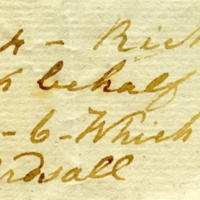 4 - Rich
behalf
- 6 - Which
rdsall